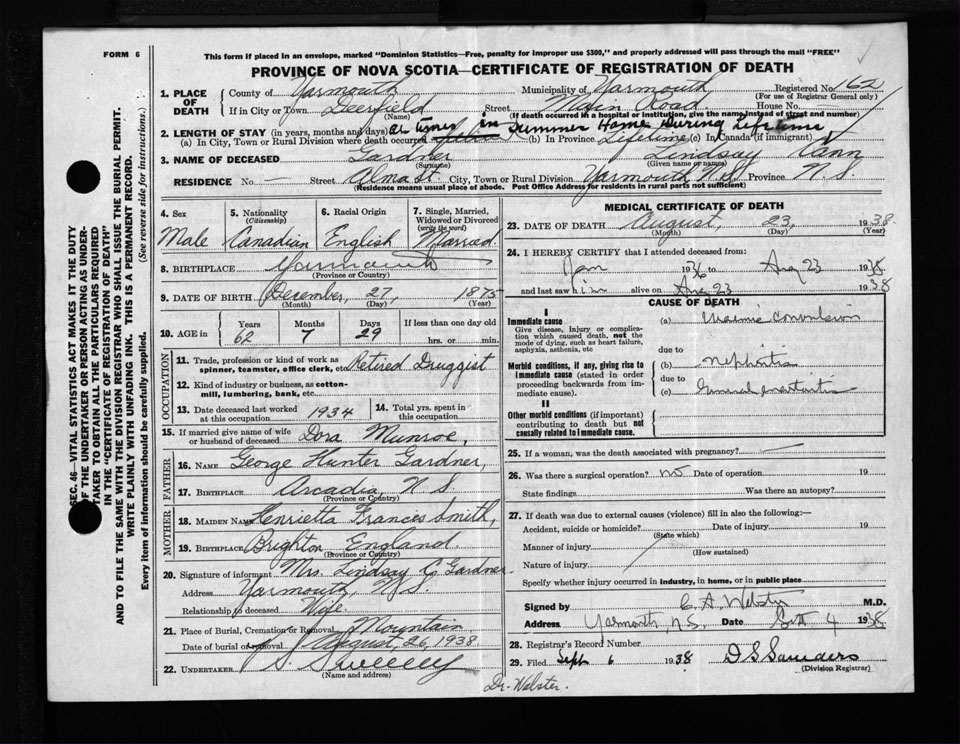 FORM 6
This form if placed in an envelope, marked "Dominion Statistics—Free, penalty for improper use $300," and properly addressed will pass through the mail "FREE"
PROVINCE OF NOVA SCOTIA—CERTIFICATE OF REGISTRATION OF DEATH
1. PLACE OF DEATH
County of Yarmouth Municipality of Yarmouth Registered No. 162
(For use of Registrar General only)
If in City or Town Deerfield Street Main Road House No.
(Name) (If death occurred in a hospital or institution, give the name instead of street and number)
2. LENGTH OF STAY (in years, months and days) At Times in Summer Home During Lifetime
(a) In City, Town or Rural Division where death occurred (b) In Province Lifetime (c) In Canada (if immigrant)
3. NAME OF DECEASED Gardner Lindsay Cann
(Surname) (Given name or names)
RESIDENCE No. Street Alma St. City, Town or Rural Division Yarmouth N.S. Province N.S.
(Residence means usual place of abode. Post Office Address for residents in rural parts not sufficient)
4. Sex 5. Nationality (Citizenship) 6. Racial Origin 7. Single, Married, Widowed or Divorced (write the word)
Male Canadian English Married
8. BIRTHPLACE Yarmouth
(Province or Country)
9. DATE OF BIRTH December, 27, 1875
(Month) (Day) (Year)
10. AGE in Years Months Days If less than one day old
62 7 29 hrs. or min.
OCCUPATION
11. Trade, profession or kind of work as spinner, teamster, office clerk, etc. Retired Druggist
12. Kind of industry or business, as cotton-mill, lumbering, bank, etc.
13. Date deceased last worked at this occupation 1934 14. Total yrs. spent in this occupation
15. If married give name of wife or husband of deceased Dora Munroe,
FATHER
16. NAME George Hunter Gardner,
17. BIRTHPLACE Arcadia, N.S.
(Province or Country)
MOTHER
18. MAIDEN NAME Henrietta Frances Smith,
19. BIRTHPLACE Brighton England.
(Province or Country)
20. Signature of informant Mrs. Lindsay C. Gardner.
Address Yarmouth, N.S.
Relationship to deceased Wife.
21. Place of Burial, Cremation or Removal Mountain
Date of burial or removal August, 26, 1938
22. UNDERTAKER S. Sweeney
(Name and address)
MEDICAL CERTIFICATE OF DEATH
23. DATE OF DEATH August, 23, 1938.
(Month) (Day) (Year)
24. I HEREBY CERTIFY that I attended deceased from:
Jan 1936 to Aug 23 1938
and last saw him alive on Aug 23 1938
CAUSE OF DEATH
I
Immediate cause (a) Uraemic convulsion
Give disease, injury or complication which caused death, not the mode of dying, such as heart failure, asphyxia, asthenia, etc
due to
Morbid conditions, if any, giving rise to immediate cause (stated in order proceeding backwards from immediate cause). (b) nephritis
due to
(c) General
II
Other morbid conditions (if important) contributing to death but not causally related to immediate cause.
25. If a woman, was the death associated with pregnancy?
26. Was there a surgical operation? no Date of operation 19
State findings Was there an autopsy?
27. If death was due to external causes (violence) fill in also the following:—
Accident, suicide or homicide? Date of injury 19
(State which)
Manner of injury
(How sustained)
Nature of injury
Specify whether injury occurred in industry, in home, or in public place
Signed by C. A. Webster M.D.
Address Yarmouth, N.S. Date Sept 4 1938
28. Registrar's Record Number
29. Filed Sept 6 1938 D S Saunders
(Division Registrar)
Dr. Webster.
SEC. 46—VITAL STATISTICS ACT MAKES IT THE DUTY
OF THE UNDERTAKER OR PERSON ACTING AS UNDER-
TAKER TO OBTAIN ALL THE PARTICULARS REQUIRED
IN THE "CERTIFICATE OF REGISTRATION OF DEATH"
AND TO FILE THE SAME WITH THE DIVISION REGISTRAR WHO SHALL ISSUE THE BURIAL PERMIT.
WRITE PLAINLY WITH UNFADING INK. THIS IS A PERMANENT RECORD.
Every item of information should be carefully supplied. (See reverse side for instructions.)